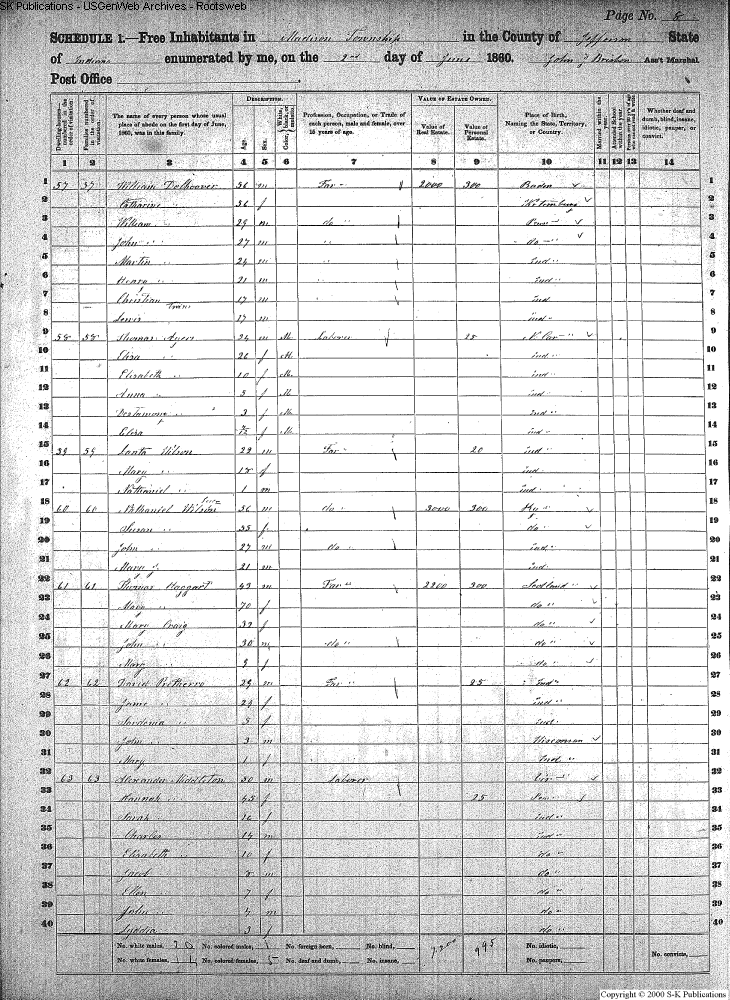 SK Publications - USGenWeb Archives - Rootsweb
Page No. 8
SCHEDULE 1.—Free Inhabitants in Madison Township in the County of Jefferson State
of Indiana enumerated by me, on the 2nd day of June 1860. John Ass't Marshal
Post Office
Dwelling-houses—numbered in the order of visitation.
Families numbered in the order of visitation.
The name of every person whose usual place of abode on the first day of June, 1860, was in this family.
DESCRIPTION.
Age.
Sex.
Color, White, black, or mulatto.
Profession, Occupation, or Trade of each person, male and female, over 15 years of age.
VALUE OF ESTATE OWNED.
Value of Real Estate.
Value of Personal Estate.
Place of Birth, Naming the State, Territory, or Country.
Married within the year.
Attended School within the year.
Whether deaf and dumb, blind, insane, idiotic, pauper, or convict.
1 2 3 4 5 6 7 8 9 10 11 12 13 14
1 57 57 William 56 m Far 2000 300 Baden 1
2 Catharine " 56 f 2
3 William " 29 m do " 3
4 John " 27 m " do 4
5 Martin " 24 m " Ind 5
6 Henry " 21 m " Ind 6
7 Christian " 17 m Ind 7
8 Lewis " 17 m Ind 8
9 58 58 Thomas Ayers 34 m M Laborer 25 N Car 9
10 Eliza " 26 f M Ind 10
11 Elizabeth " 10 f M Ind 11
12 Anna " 5 f M Ind 12
13 3 f M Ind 13
14 Eliza f M Ind 14
15 59 59 Wilson 22 m Far 20 Ind 15
16 Mary " 18 f Ind 16
17 Nathaniel " 1 m Ind 17
18 60 60 Nathaniel Wilson 56 m do 3000 300 Ky 18
19 Susan " 55 f do 19
20 John " 27 m do Ind 20
21 Mary " 21 m Ind 21
22 61 61 Thomas Haggart 43 m Far 2200 300 Scotland 22
23 Mary " 70 f do 23
24 Mary Craig 39 f do 24
25 John " 30 m do do 25
26 Mary " 9 f do 26
27 62 62 David 29 m Far 25 Ind 27
28 Jane " 24 f Ind 28
29 " 5 f Ind 29
30 John " 3 m Wisconsan 30
31 Mary " 1 f Ind 31
32 63 63 Alexander Middleton 50 m laborer Vir 32
33 Hannah " 45 f 25 33
34 Sarah " 16 f Ind 34
35 Charles " 14 m Ind 35
36 Elizabeth " 10 f do 36
37 Jacob " 8 m do 37
38 Ellen " 7 f do 38
39 John " m do 39
40 Lyddia " 3 f do 40
No. white males, 20 No. colored males, 1 No. foreign born, No. blind, 7,200 995 No. idiotic, No. convicts,
No. white females, 14 No. colored females, 5 No. deaf and dumb, No. insane, No. paupers,
Copyright © 2000 S-K Publications